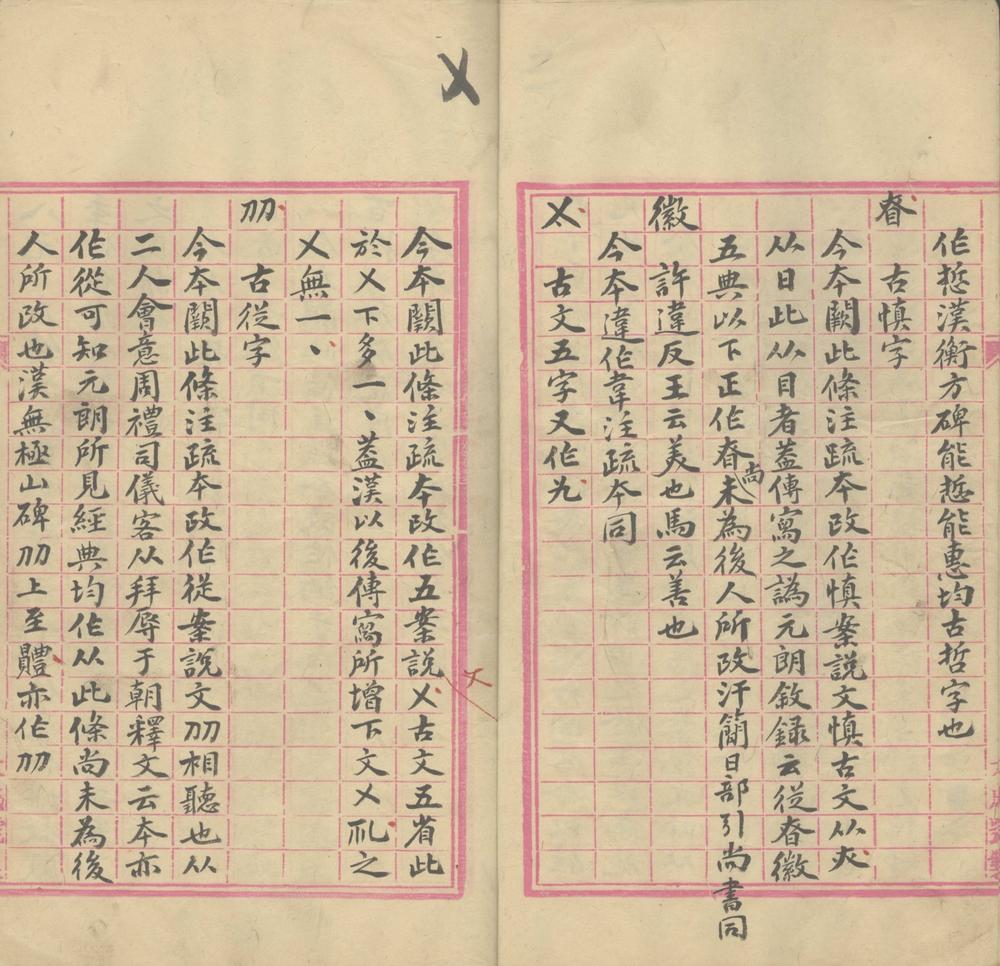 作悊漢衡方碑能悊能惠均古哲字也
昚
古慎字
今本闕此條注疏本改作慎案說文慎古文从火
从日此从目者葢傳寫之譌元朗敘録云從昚徽
五典以下正作昚尚未為後人所改汗簡日部引尚書同
徽
許違反王云美也馬云善也
今本違作韋注疏本同
古文五字又作
今本闕此條注疏本改作五案說㐅古文五省此
於㐅下多一丶葢漢以後傳寫所增下文㐅之
㐅無一丶
刀刀
古從字
今本闕此條注疏本改作從案說文刀刀相聽也从
二人會意周禮司儀客从拜辱于朝釋文云本亦
作從可知元朗所見經典均作从此條尚未為後
人所改也漢無極山碑刀刀上至體亦作刀刀